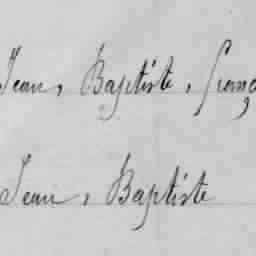 Jean, Baptiste, franç
Jean, Baptiste